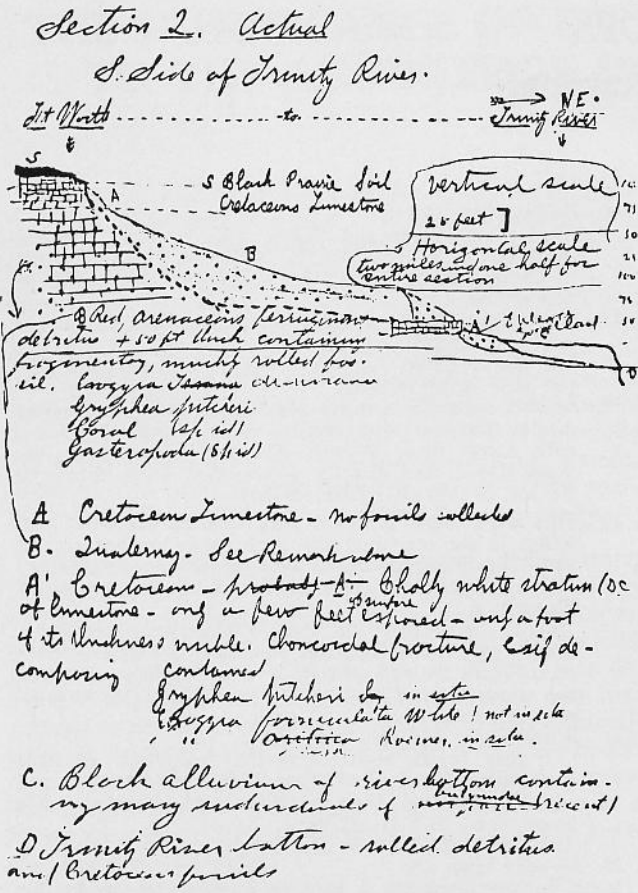 Section 2. Actual
S. Side of Trinity River.
NE.
Ft Worth -to- Trinity River
S
A
S Black Prairie Soil
Cretaceous Limestone
B
Vertical scale
25 feet ]
Horizontal scale
two miles and one half for
entire section
100
75
50
25
100
75
50
0
A'
B Red, arenaceous ferruginous
detritus + 50 ft thick containing
fragmentary, much rolled fos-
sil. Exogyra Texana
Gryphea pitcheri
Coral (sp id)
Gasteropoda (sp id)
A Cretacean Limestone - no fossils collected
B. Quaternay - See Remark above
A' Cretacean - probably A - Chalky white stratum
of limestone - only a few feet exposed - only a foot
of its thickness visible. Choncoidal fracture, easily de-
composing contained
Gryphea pitcheri in situ
Exogyra White ! not in situ
" " Roemer, in situ.
C. Black alluvium of river bottom contain-
ing many individuals of (recent)
D Trinity River bottom - rolled detritus
and Cretacean fossils